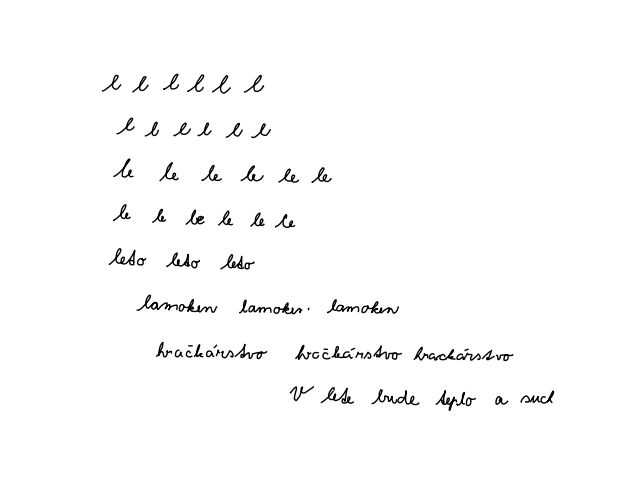 l l l l l l
l l l l l l
le le le le le le
le le le le le le
leto leto leto
lamoken lamoken. lamoken
hračkárstvo hračkárstvo hrackárstvo
V lete bude teplo a such